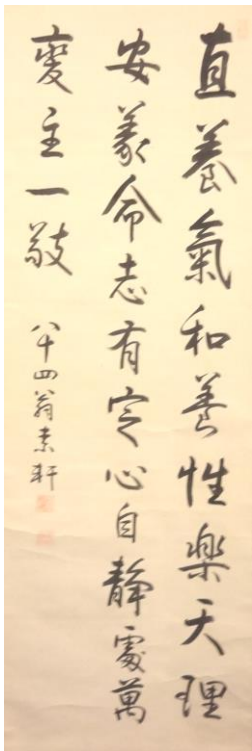 直養氣和養性樂天理
安義命志有定心自靜處萬
變主一敬
八十四翁素軒